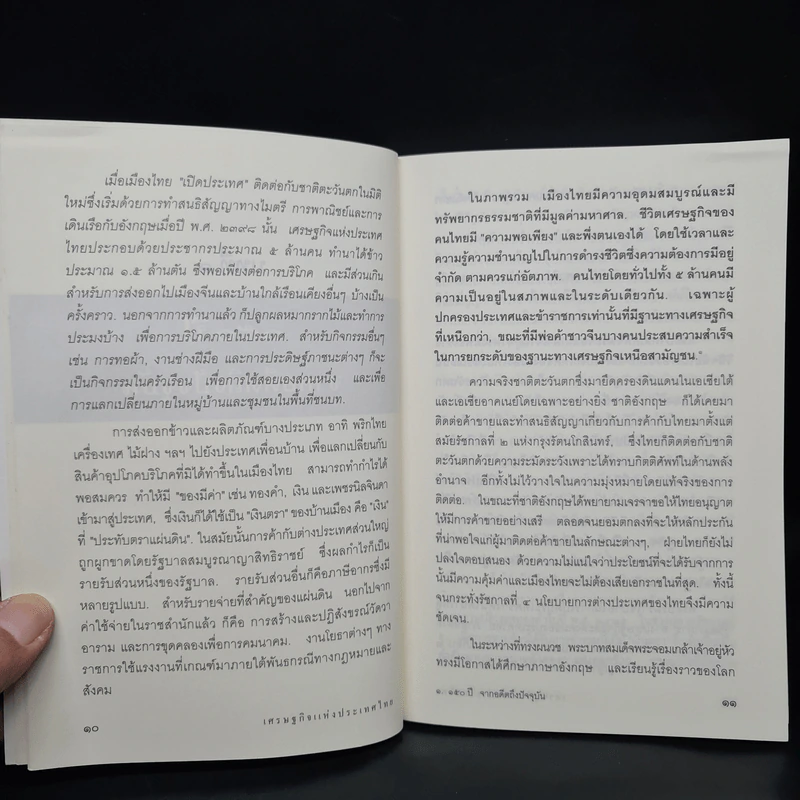 เมื่อเมืองไทย "เปิดประเทศ" ติดต่อกับชาติตะวันตกในมิติ
ใหม่ซึ่งเริ่มด้วยการทำสนธิสัญญาทางไมตรี การพาณิชย์และการ
เดินเรือกับอังกฤษเมื่อปี พ.ศ. ๒๓๙๘ นั้น เศรษฐกิจแห่งประเทศ
ไทยประกอบด้วยประชากรประมาณ ๕ ล้านคน ทำนาได้ข้าว
ประมาณ ๑.๕ ล้านตัน ซึ่งพอเพียงต่อการบริโภค และมีส่วนเกิน
สำหรับการส่งออกไปเมืองจีนและบ้านใกล้เรือนเคียงอื่นๆ บ้างเป็น
ครั้งคราว. นอกจากการทำนาแล้ว ก็ปลูกผลหมากรากไม้และทำการ
ประมงบ้าง เพื่อการบริโภคภายในประเทศ. สำหรับกิจกรรมอื่นๆ
เช่น การทอผ้า, งานช่างฝีมือ และการประดิษฐ์ภาชนะต่างๆ ก็จะ
เป็นกิจกรรมในครัวเรือน เพื่อการใช้สอยเองส่วนหนึ่ง และเพื่อ
การแลกเปลี่ยนภายในหมู่บ้านและชุมชนในพื้นที่ชนบท.
การส่งออกข้าวและผลิตภัณฑ์บางประเภท อาทิ พริกไทย
เครื่องเทศ ไม้ฝาง ฯลฯ ไปยังประเทศเพื่อนบ้าน เพื่อแลกเปลี่ยนกับ
สินค้าอุปโภคบริโภคที่มิได้ทำขึ้นในเมืองไทย สามารถทำกำไรได้
พอสมควร ทำให้มี "ของมีค่า" เช่น ทองคำ, เงิน และเพชรนิลจินดา
เข้ามาสู่ประเทศ, ซึ่งเงินก็ได้ใช้เป็น "เงินตรา" ของบ้านเมือง คือ "เงิน"
ที่ "ประทับตราแผ่นดิน". ในสมัยนั้นการค้ากับต่างประเทศส่วนใหญ่
ถูกผูกขาดโดยรัฐบาลสมบูรณาญาสิทธิราชย์ ซึ่งผลกำไรก็เป็น
รายรับส่วนหนึ่งของรัฐบาล. รายรับส่วนอื่นก็คือภาษีอากรซึ่งมี
หลายรูปแบบ. สำหรับรายจ่ายที่สำคัญของแผ่นดิน นอกไปจาก
ค่าใช้จ่ายในราชสำนักแล้ว ก็คือ การสร้างและปฏิสังขรณ์วัดวา
อาราม และการขุดคลองเพื่อการคมนาคม. งานโยธาต่างๆ ทาง
ราชการใช้แรงงานที่เกณฑ์มาภายใต้พันธกรณีทางกฎหมายและ
สังคม
๑๐
เศรษฐกิจแห่งประเทศไทย
ในภาพรวม เมืองไทยมีความอุดมสมบูรณ์และมี
ทรัพยากรธรรมชาติที่มีมูลค่ามหาศาล. ชีวิตเศรษฐกิจของ
คนไทยมี "ความพอเพียง" และพึ่งตนเองได้ โดยใช้เวลาและ
ความรู้ความชำนาญไปในการดำรงชีวิตซึ่งความต้องการมีอยู่
จำกัด ตามควรแก่อัตภาพ. คนไทยโดยทั่วไปทั้ง ๕ ล้านคนมี
ความเป็นอยู่ในสภาพและในระดับเดียวกัน. เฉพาะผู้
ปกครองประเทศและข้าราชการเท่านั้นที่มีฐานะทางเศรษฐกิจ
ที่เหนือกว่า, ขณะที่มีพ่อค้าชาวจีนบางคนประสบความสำเร็จ
ในการยกระดับของฐานะทางเศรษฐกิจเหนือสามัญชน.
ความจริงชาติตะวันตกซึ่งมายึดครองดินแดนในเอเชียใต้
และเอเชียอาคเนย์โดยเฉพาะอย่างยิ่ง ชาติอังกฤษ ก็ได้เคยมา
ติดต่อค้าขายและทำสนธิสัญญาเกี่ยวกับการค้ากับไทยมาตั้งแต่
สมัยรัชกาลที่ ๒ แห่งกรุงรัตนโกสินทร์, ซึ่งไทยก็ติดต่อกับชาติ
ตะวันตกด้วยความระมัดระวังเพราะได้ทราบกิตติศัพท์ในด้านพลัง
อำนาจ อีกทั้งไม่ไว้วางใจในความมุ่งหมายโดยแท้จริงของการ
ติดต่อ. ในขณะที่ชาติอังกฤษได้พยายามเจรจาขอให้ไทยอนุญาต
ให้มีการค้าขายอย่างเสรี ตลอดจนยอมตกลงที่จะให้หลักประกัน
ที่น่าพอใจแก่ผู้มาติดต่อค้าขายในลักษณะต่างๆ, ฝ่ายไทยก็ยังไม่
ปลงใจตอบสนอง ด้วยความไม่แน่ใจว่าประโยชน์ที่จะได้รับจากการ
นั้นมีความคุ้มค่าและเมืองไทยจะไม่ต้องเสียเอกราชในที่สุด. ทั้งนี้
จนกระทั่งรัชกาลที่ ๔ นโยบายการต่างประเทศของไทยจึงมีความ
ชัดเจน.
ในระหว่างที่ทรงผนวช พระบาทสมเด็จพระจอมเกล้าเจ้าอยู่หัว
ทรงมีโอกาสได้ศึกษาภาษาอังกฤษ และเรียนรู้เรื่องราวของโลก
๑ ๑๕๐ ปี จากอดีตถึงปัจจุบัน
๑๑